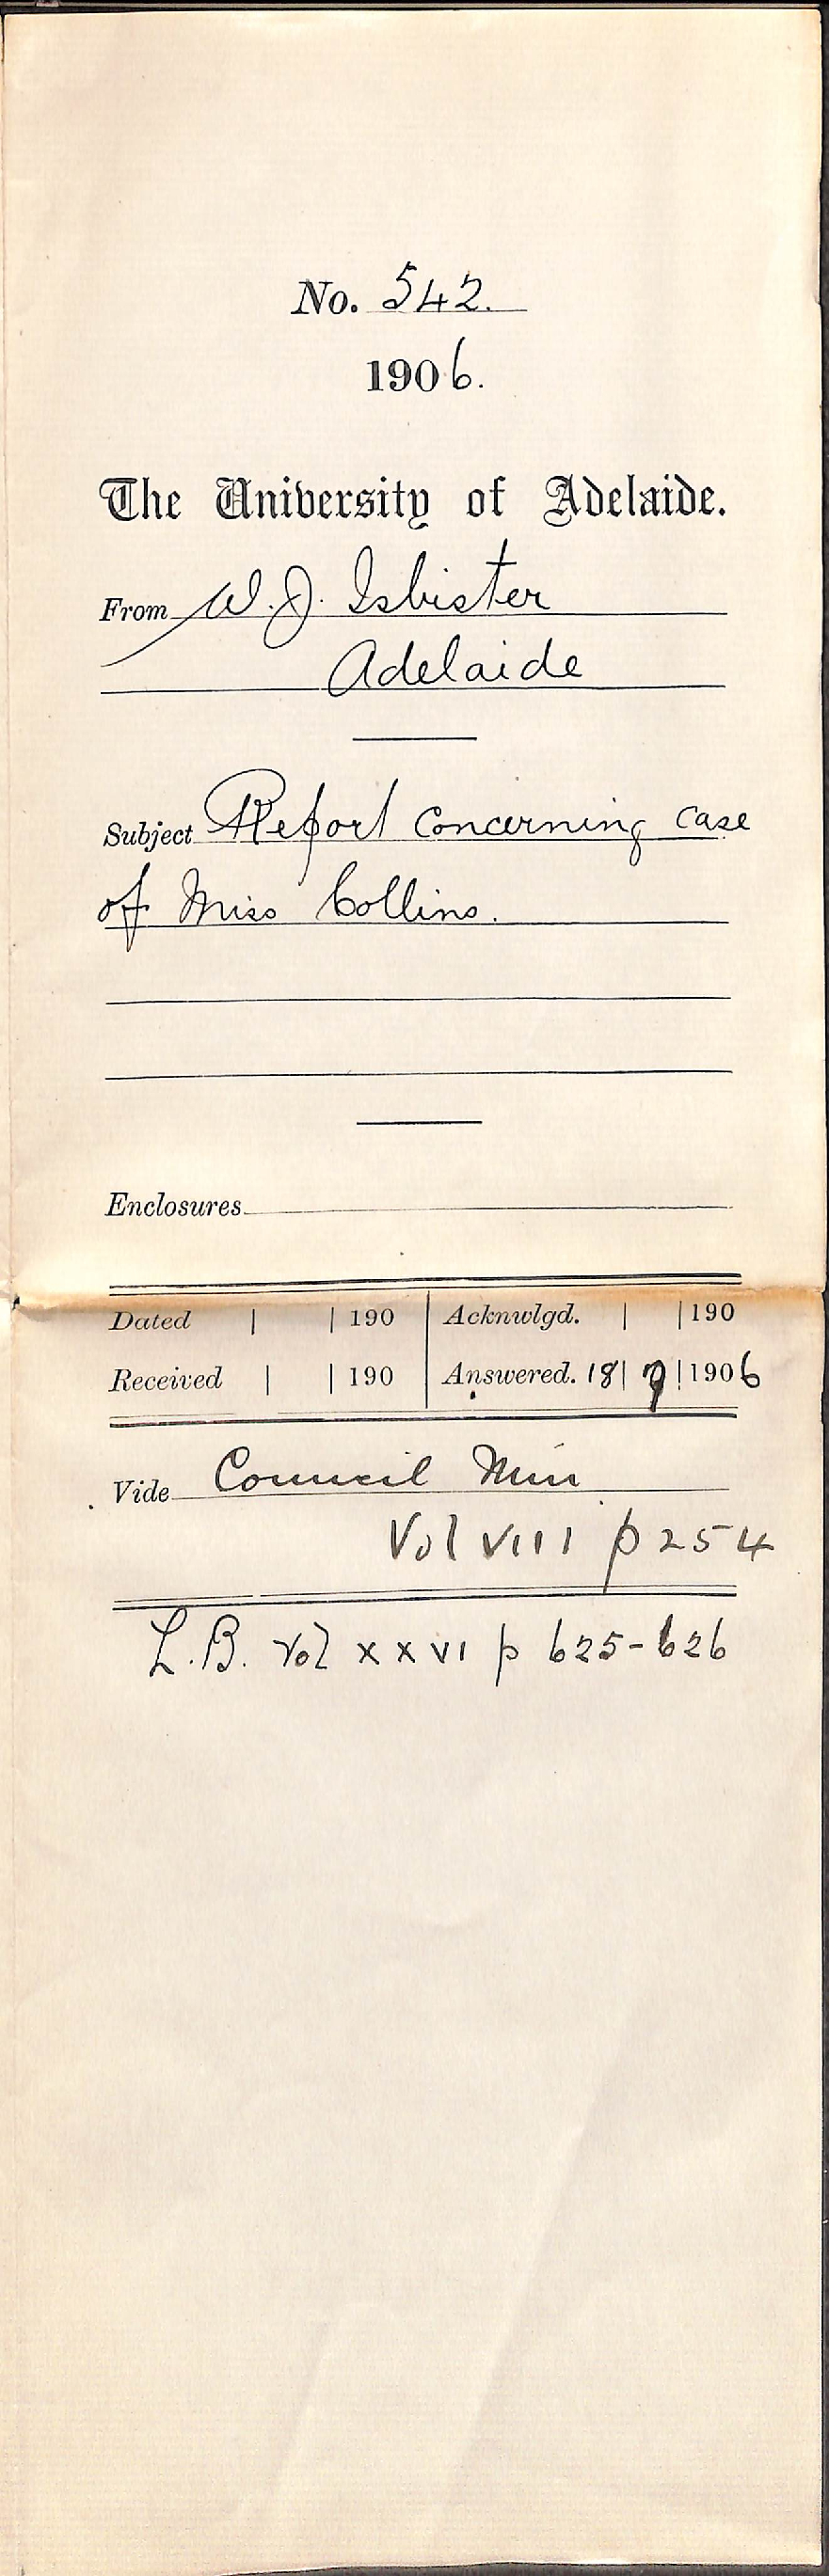 No. 542.
1906.
The University of Adelaide.
From W. J. Isbister
Adelaide
Subject Report concerning case
of Miss Collins.
Enclosures
Dated | | 190 Acknwlgd. | | 190
Received | | 190 Answered. 18 | 7 | 1906
Vide Council Min
Vol VIII p 254
L.B. Vol XXVI p 625-626